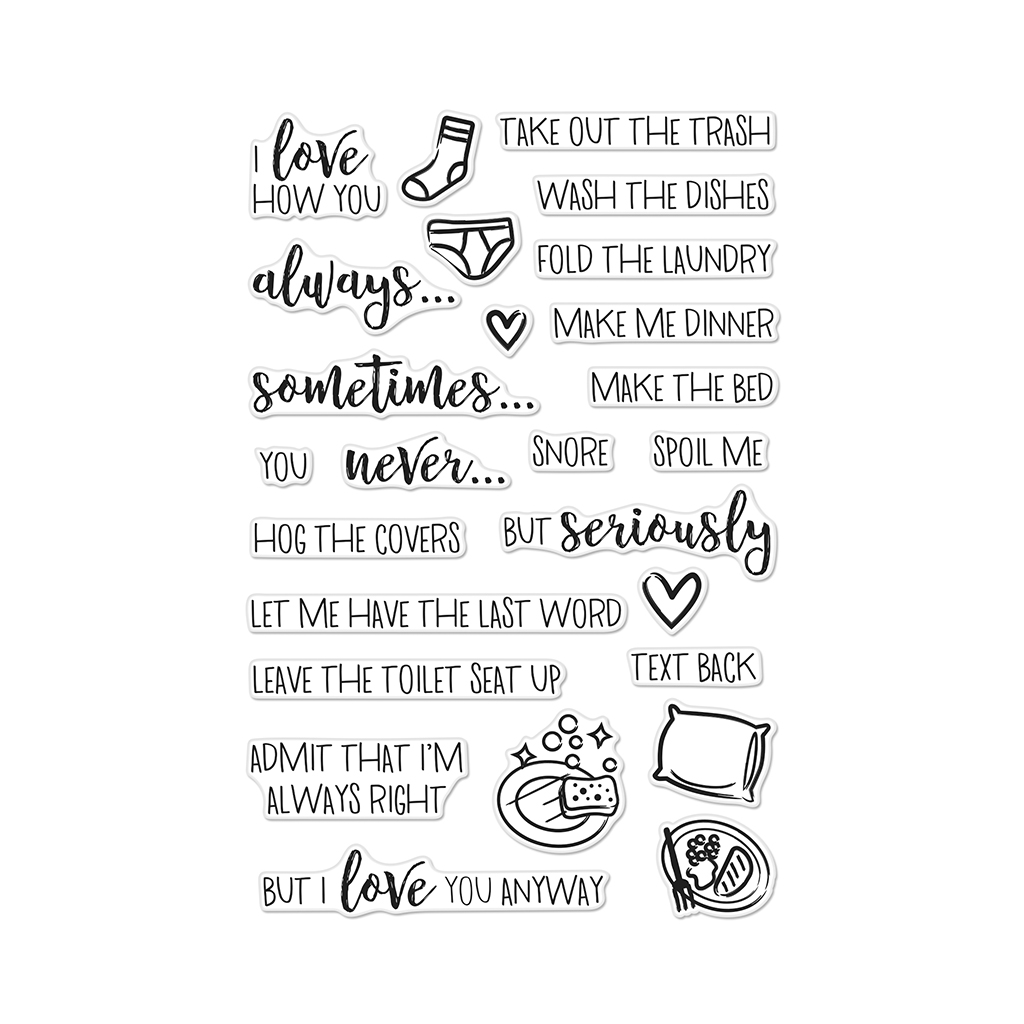 I love
HOW YOU
TAKE OUT THE TRASH
WASH THE DISHES
always...
FOLD THE LAUNDRY
MAKE ME DINNER
sometimes...
MAKE THE BED
YOU
never...
SNORE
SPOIL ME
HOG THE COVERS
BUT seriously
LET ME HAVE THE LAST WORD
TEXT BACK
LEAVE THE TOILET SEAT UP
ADMIT THAT I'M
ALWAYS RIGHT
BUT I love YOU ANYWAY